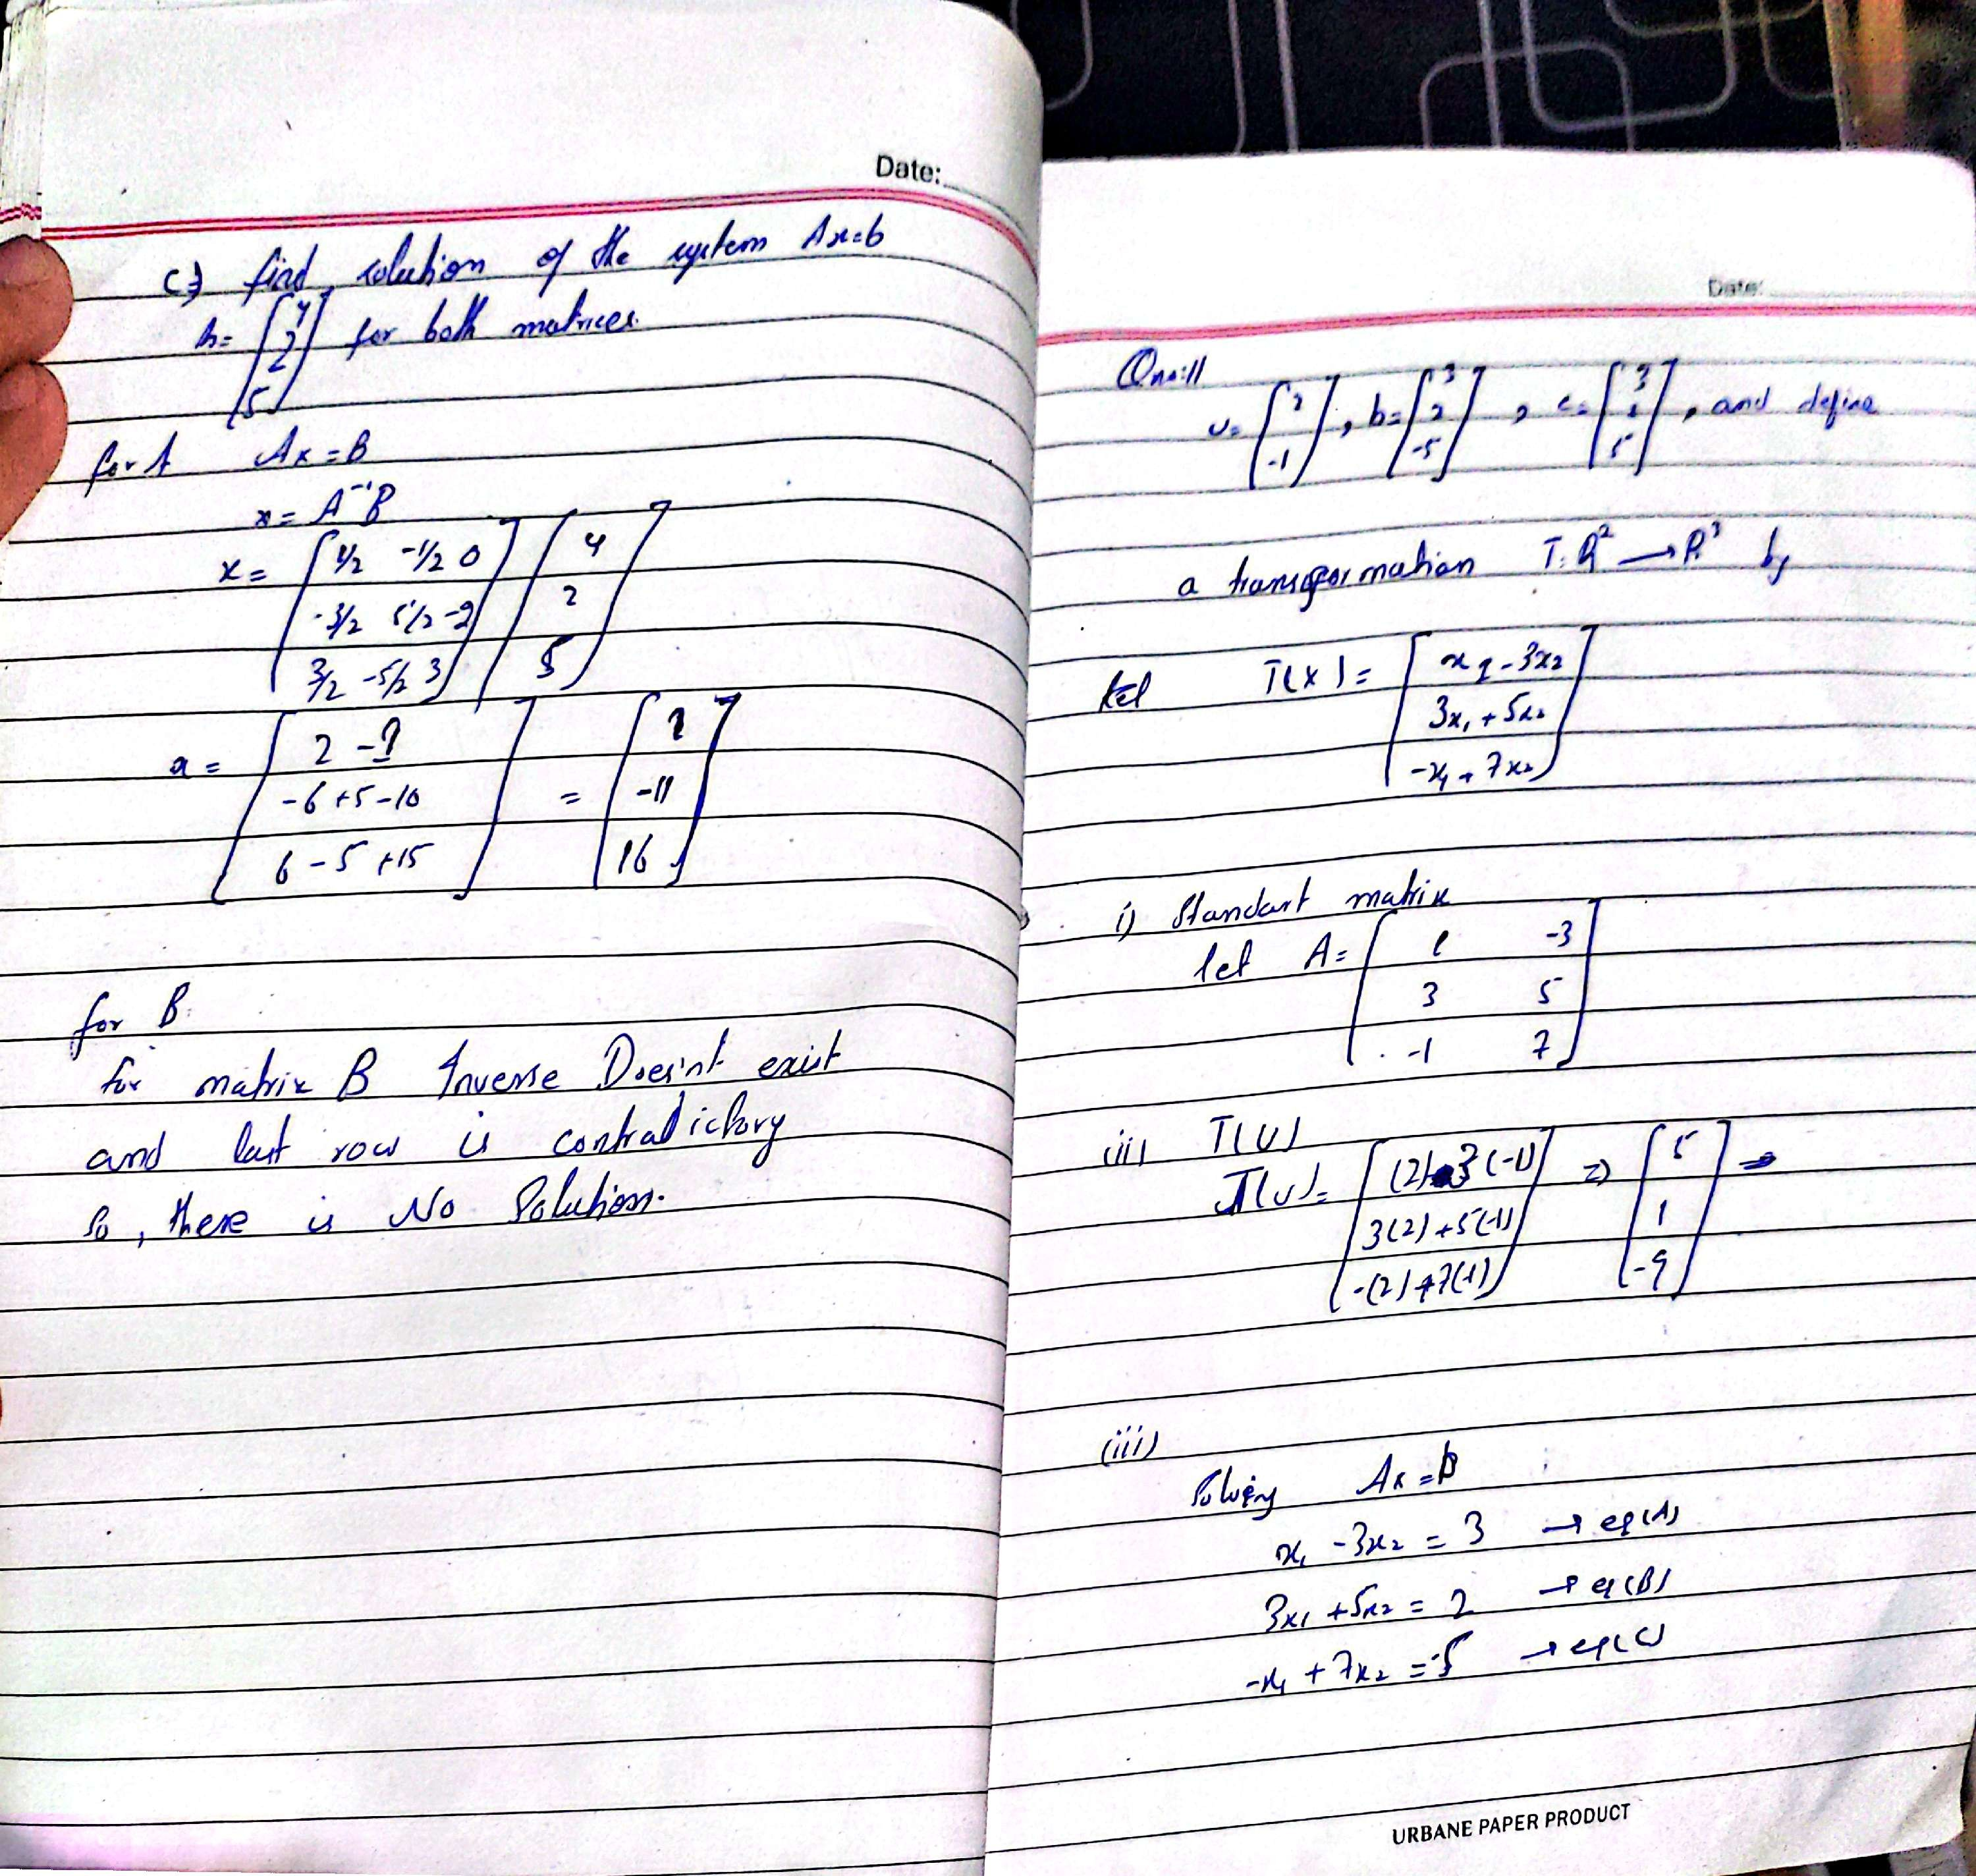 Date:
c) find solution of the system Ax=b
b= [4 2 5] for both matrices.
for A Ax=B
x= A⁻¹B
x= [1/2 -1/2 0
-3/2 5/2 -2
3/2 -5/2 3] [4
2
5]
x= [2 -1
-6+5-10
6-5+15] = [1
-11
16]
for B:
for matrix B Inverse Doesn't exist
and last row is contradictory
so, there is No Solution.
Date:
Qno:11
u= [2 -1], b= [3 2 -5], c= [3 2 5], and define
a transformation T: R² → R³ by
let T(x)= [x1-3x2
3x1+5x2
-x1+7x2]
i) Standart matrix
let A= [1 -3
3 5
-1 7]
(ii) T(U)
T(U)= [(2)-3(-1)
3(2)+5(-1)
-(2)+7(-1)] => [5
1
-9]
(iii)
Solving Ax=b
x1 -3x2 = 3 → eq(A)
3x1 +5x2 = 2 → eq(B)
-x1 +7x2 = -5 → eq(C)
URBANE PAPER PRODUCT